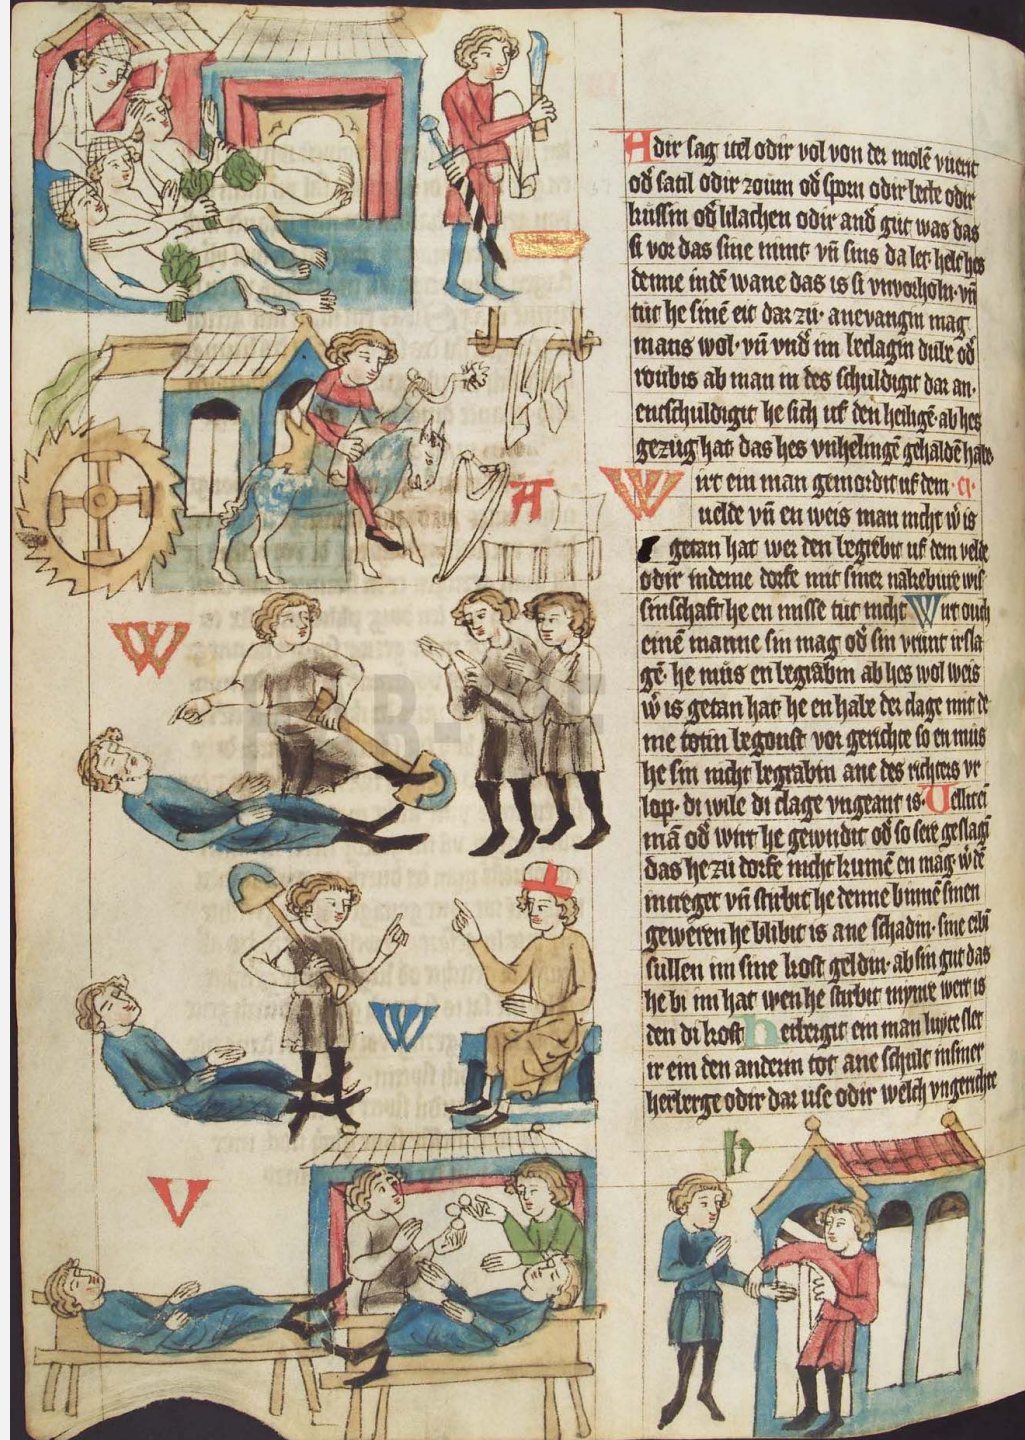 Adir sag itel odir vol von der mole vuent
od̕ satil odir zoum od̕ sporn odir lecte odir
kussin od̕ lilachen odir and̕ gut was das
si vor das sine nimt· vn̄ sins da let helt hes
denne indē wane das is si vnvorholn· vn̄
tut he sinē eit dar zů· anevangin mag
mans wol· vn̄ vnd̕ im beclagin dube od̕
roubis ab man in des schuldigit dar an·
entschuldigit he sich uf den heiligē· ab hes
gezug hat das hes vnhelingē gehaldē habe
Wirt ein man gemordit uf dem ·
velde vn̄ en weis man nicht w̕ is
getan hat wer den begrebit uf dem velde
odir indeme dorfe mit siner nakebure wis
sinschaft he en misse tut nicht Wirt ouch
einē manne sin mag od̕ sin vrunt irsla
gē· he můs en begrabin ab hes wol weis
w̕ is getan hat· he en habe der clage mit de
me totin begonst vor gerichte so en mus
he sin nicht begrabin ane des richters vr
lop· di wile di clage vngeant is· Vellit ei
mā od̕ wirt he gewndit od̕ so sere geslagī
das he zu dorfe nicht kumē en mag w̕ dē
intreget vn̄ stirbit he denne binnē sinen
geweren he blibit is ane schadin· sine erbī
sullen im sine kost geldin· ab sin gut das
he bi im hat wen he stirbit mynre wert is
den di kost herbergit ein man luyte slet
ir ein den andern tot ane schult insiner
herberge odir dar use odir welch vngerichte
A
W
W
V
h